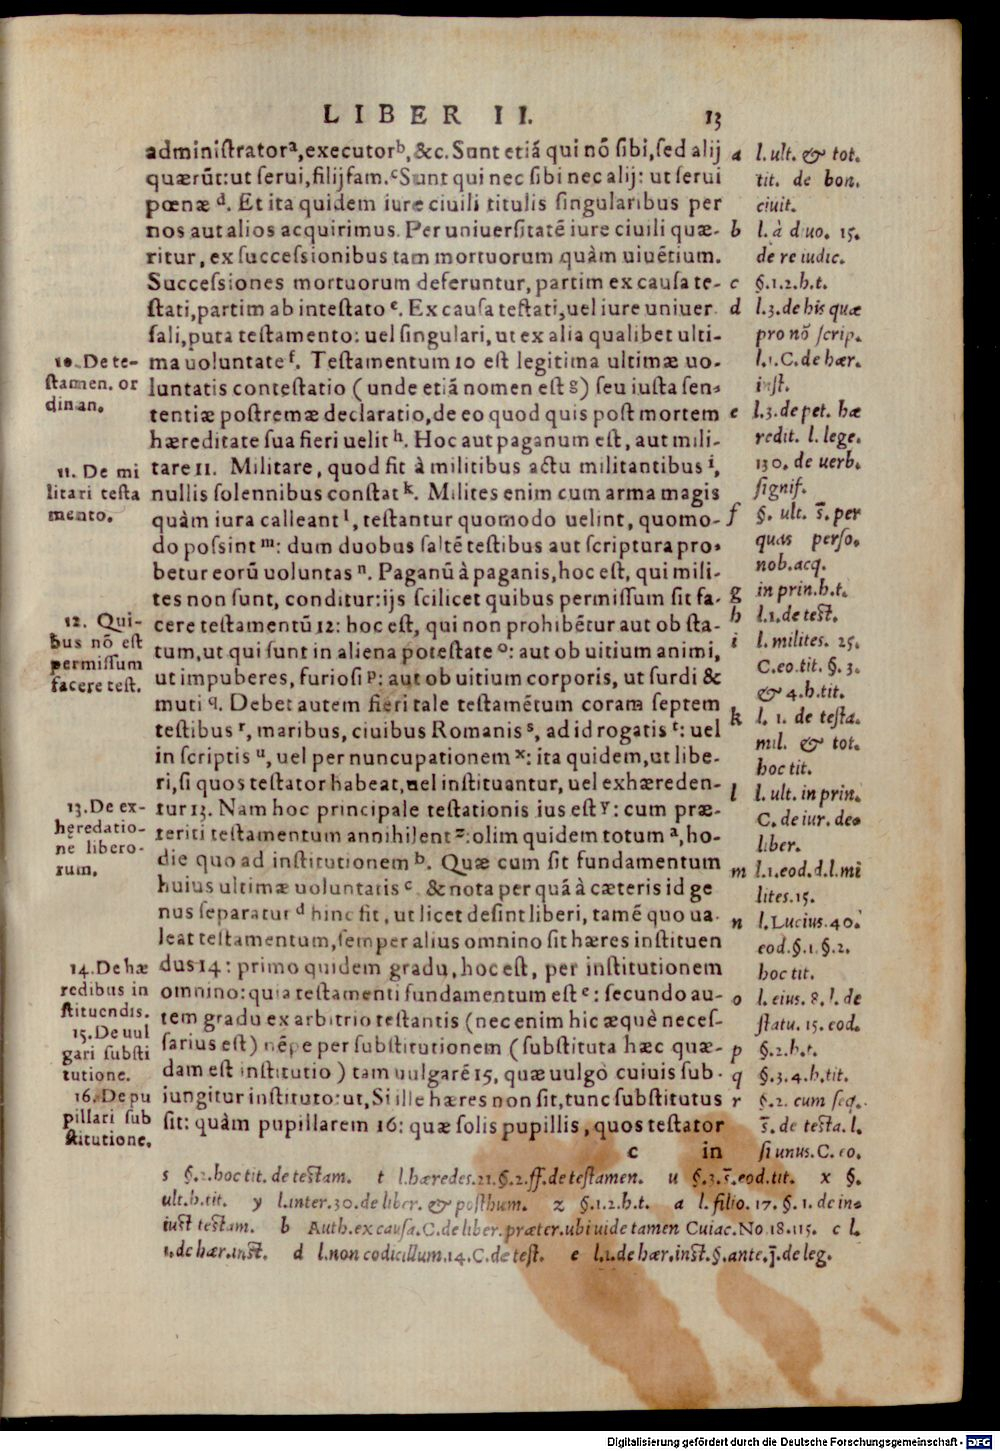 LIBER II. 13
administratorᵃ, executorᵇ, &c. Sunt etiã qui nõ sibi, sed alij
quærũt: ut serui, filijfam.ᶜ Sunt qui nec sibi nec alij: ut serui
pœnæ ᵈ. Et ita quidem iure ciuili titulis singularibus per
nos aut alios acquirimus. Per uniuersitatẽ iure ciuili quæ-
ritur, ex successionibus tam mortuorum quàm uiuẽtium.
Successiones mortuorum deferuntur, partim ex causa te-
stati, partim ab intestato ᵉ. Ex causa testati, uel iure uniuer
sali, puta testamento: uel singulari, ut ex alia qualibet ulti-
ma uoluntate ᶠ. Testamentum 10 est legitima ultimæ uo-
luntatis contestatio (unde etiã nomen est ᵍ) seu iusta sen-
tentiæ postremæ declaratio, de eo quod quis post mortem
hæreditate sua fieri uelit ʰ. Hoc aut paganum est, aut mili-
tare 11. Militare, quod fit à militibus actu militantibus ⁱ,
nullis solennibus constat ᵏ. Milites enim cum arma magis
quàm iura calleant ˡ, testantur quomodo uelint, quomo-
do possint ᵐ: dum duobus saltẽ testibus aut scriptura pro-
betur eorũ uoluntas ⁿ. Paganũ à paganis, hoc est, qui mili-
tes non sunt, conditur: ijs scilicet quibus permissum sit fa-
cere testamentũ 12: hoc est, qui non prohibẽtur aut ob sta-
tum, ut qui sunt in aliena potestate ᵒ: aut ob uitium animi,
ut impuberes, furiosi ᵖ: aut ob uitium corporis, ut surdi &
muti q. Debet autem fieri tale testamẽtum coram septem
testibus ʳ, maribus, ciuibus Romanis ˢ, ad id rogatis ᵗ: uel
in scriptis ᵘ, uel per nuncupationem ˣ: ita quidem, ut libe-
ri, si quos testator habeat, uel instituantur, uel exhæreden-
tur 13. Nam hoc principale testationis ius est ʸ: cum præ-
teriti testamentum annihilent ᶻ: olim quidem totum ᵃ, ho-
die quo ad institutionem ᵇ. Quæ cum sit fundamentum
huius ultimæ uoluntatis ᶜ. & nota per quã à cæteris id ge
nus separatur ᵈ hinc fit, ut licet desint liberi, tamẽ quo ua-
leat testamentum, semper alius omnino sit hæres instituen
dus 14: primo quidem gradu, hoc est, per institutionem
omnino: quia testamenti fundamentum est ᵉ: secundo au-
tem gradu ex arbitrio testantis (nec enim hic æquè neces-
sarius est) nẽpe per substitutionem (substituta hæc quæ-
dam est institutio) tam uulgarẽ 15, quæ uulgò cuiuis sub-
iungitur instituto: ut, Si ille hæres non sit, tunc substitutus
sit: quàm pupillarem 16: quæ solis pupillis, quos testator
c in
10. De te-
stamen. or
dinan.
11. De mi
litari testa
mento.
12. Qui-
bus nõ est
permissum
facere test.
13. De ex-
heredatio-
ne libero-
rum.
14. De hæ
redibus in
stituendis.
15. De uul
gari substi
tutione.
16. De pu
pillari sub
stitutione.
a l. ult. & tot.
tit. de bon.
ciuit.
b l. à diuo. 15.
de re iudic.
c §. 1. 2. h. t.
d l. 3. de his quæ
pro nõ scrip.
l. 1. C. de hær.
inst.
e l. 3. de pet. hæ
redit. l. lege.
130. de uerb.
signif.
f §. ult. s̅. per
quas perso.
nob. acq.
g in prin. h. t.
h l. 1. de test.
i l. milites. 25.
C. eo. tit. §. 3.
& 4. h. tit.
k l. 1. de testa.
mil. & tot.
hoc tit.
l l. ult. in prin.
C. de iur. de-
liber.
m l. 1. eod. d. l. mi
lites. 15.
n l. Lucius. 40.
eod. §. 1. §. 2.
hoc tit.
o l. eius. 8. l. de
statu. 15. eod.
p §. 2. h. t.
q §. 3. 4. h. tit.
r §. 2. cum seq.
s̅. de testa. l.
si unus. C. eo.
s §. 2. hoc tit. de testam. t l. hæredes. 21. §. 2. ff. de testamen. u §. 3. s̅. eod. tit. x §.
ult. h. tit. y l. inter. 30. de liber. & posthum. z §. 1. 2. h. t. a l. filio. 17. §. 1. de in-
iust testam. b Auth. ex causa. C. de liber. præter. ubi uide tamen Cuiac. No. 18. 115. c l.
1. de hær. inst. d l. non codicillum. 14. C. de test. e l. 1. de hær. inst. §. ante. j̅. de leg.
Digitalisierung gefördert durch die Deutsche Forschungsgemeinschaft - DFG